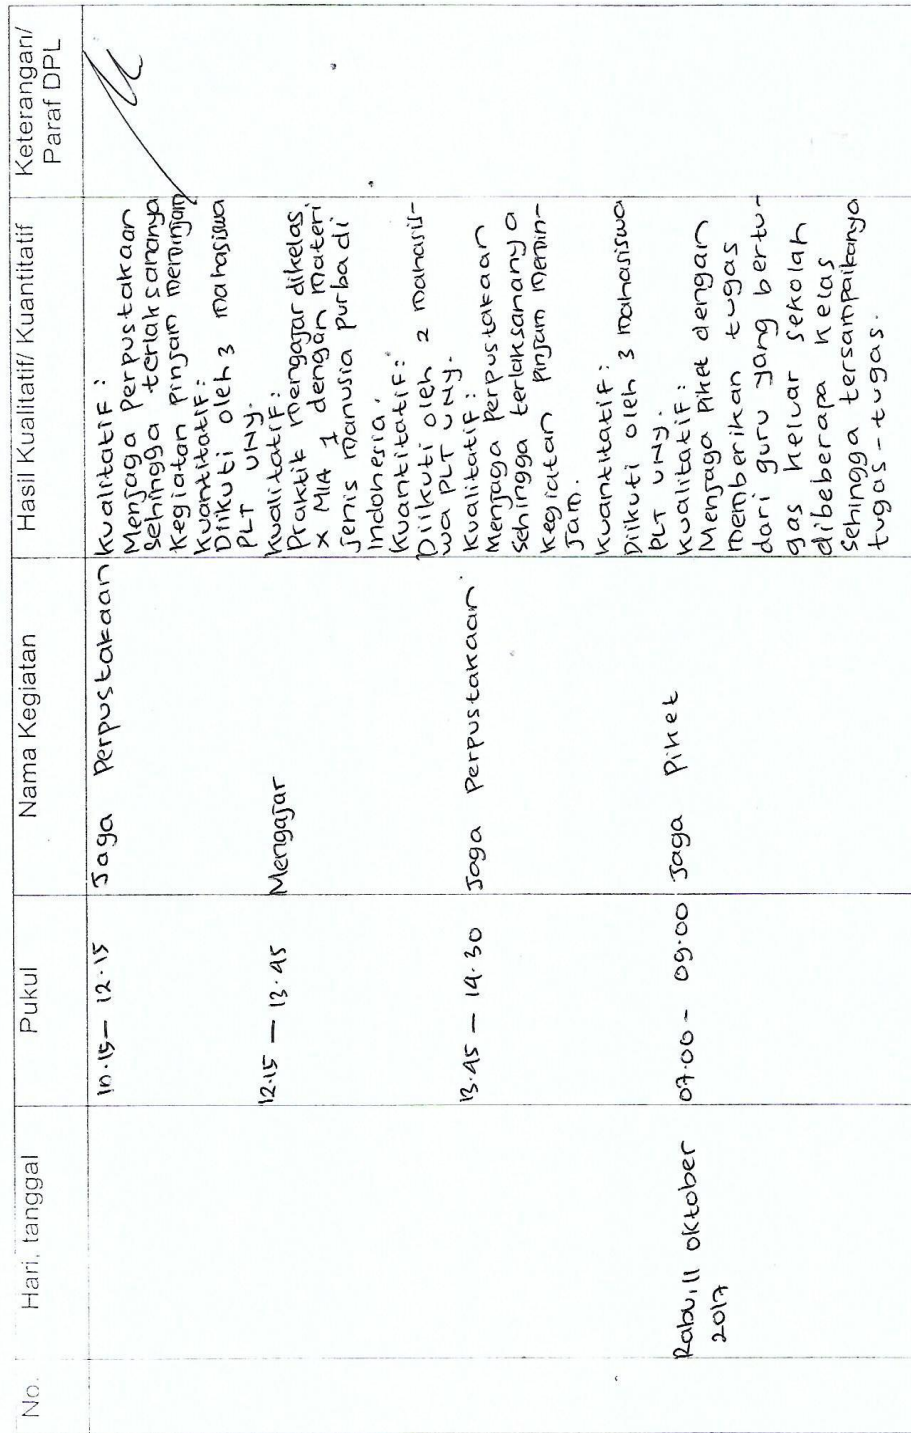 No.
Hari, tanggal
Pukul
Nama Kegiatan
Hasil Kualitatif/ Kuantitatif
Keterangan/
Paraf DPL
10.15 — 12.15
Jaga Perpustakaan
Kualitatif:
Menjaga Perpustakaan
sehingga terlaksananya
Kegiatan pinjam meminjam
Kuantitatif:
Diikuti oleh 3 mahasiswa
PLT UNY.
12.15 — 13.45
Mengajar
Kualitatif:
Praktik mengajar dikelas
X MIA 1 dengan materi
jenis manusia purba di
Indonesia.
Kuantitatif:
Diikuti oleh 2 mahasis-
wa PLT UNY.
13.45 — 14.30
Jaga Perpustakaan
Kualitatif:
Menjaga Perpustakaan
sehingga terlaksananya
Kegiatan pinjam memin-
jam.
Kuantitatif:
Diikuti oleh 3 mahasiswa
PLT UNY.
Rabu, 11 Oktober
2017
07.00 - 09.00
Jaga Piket
Kualitatif:
Menjaga Piket dengan
memberikan tugas
dari guru yang bertu-
gas keluar sekolah
dibeberapa kelas
sehingga tersampaikanya
tugas-tugas.